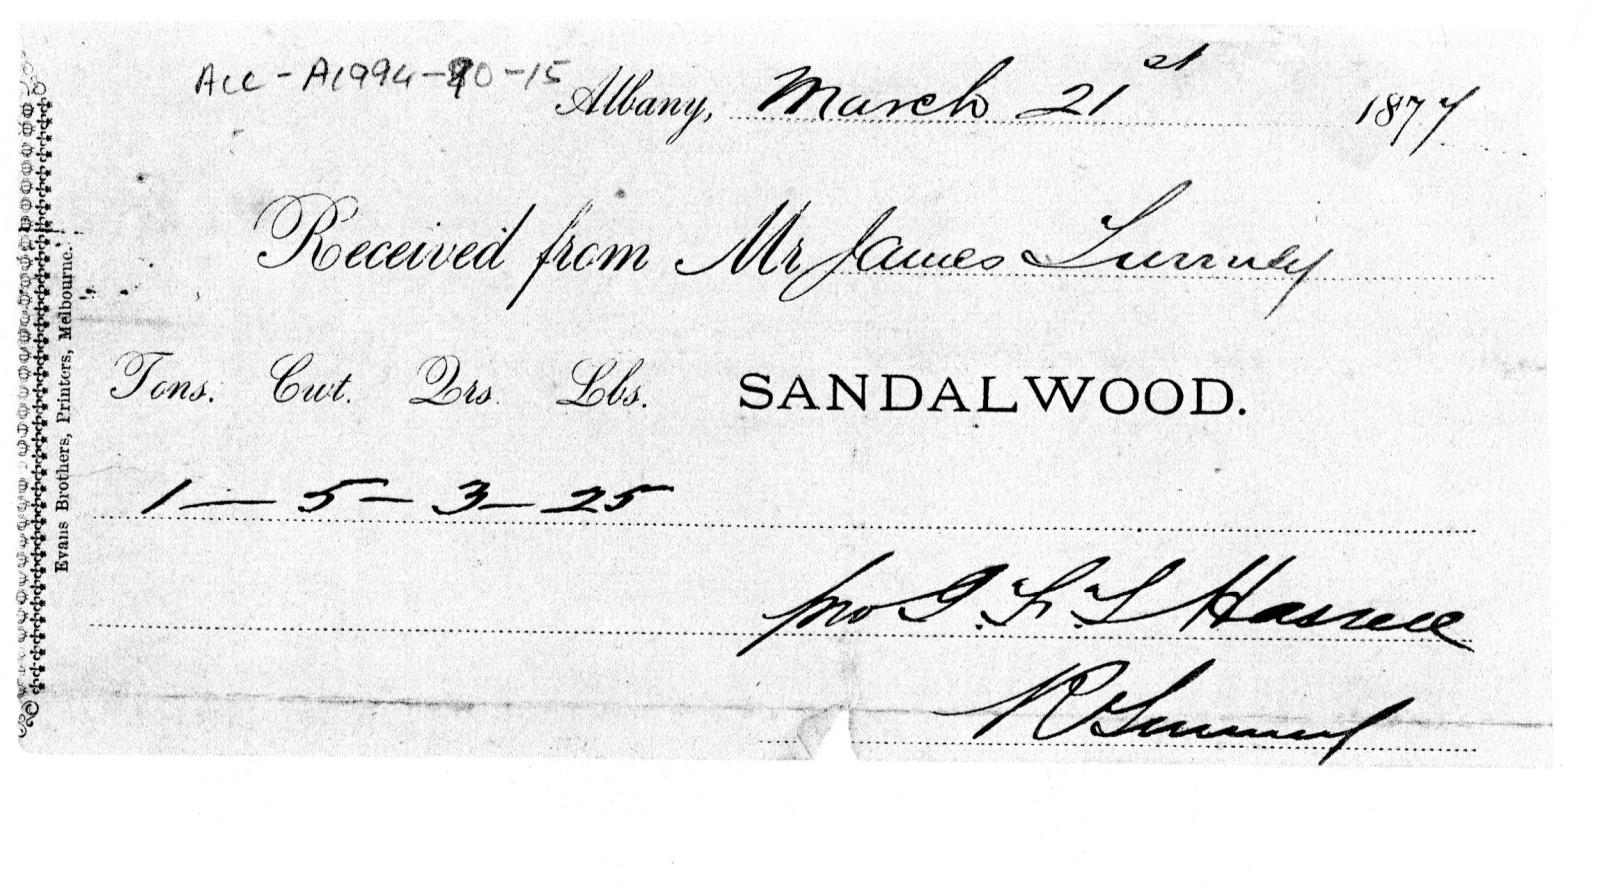 Acc - A1994-40-15
Albany, March 21st 1877
Received from Mr James
Tons. Cwt. Qrs. Lbs. SANDALWOOD.
1 — 5 — 3 — 25
pro J. F. T Hassell
Evans Brothers, Printers, Melbourne.